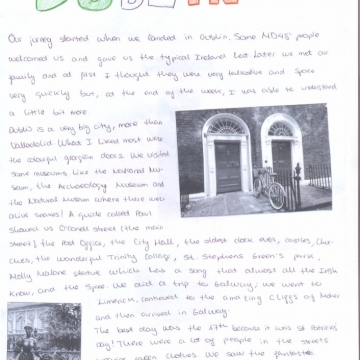 DUBLIN
Our jurney started when we landed in Dublin. Some MD45 people
welcomed us and gave us the typical Ireland Later we met our
family and at first I thought they were very talkative and spoke
very quickly but, at the end of the week, I was able to understand
a little bit more.
Dublin is a very big city, more than
Valladolid. What I liked most were
the colourful georgian doors. We visited
some museums like the National Mu-
seum, the Archaeology Museum and
the Natural Museum where there were
alive snakes! A guide called Paul
showed us O'Conell street (the main
street) the Post Office, the City Hall, the oldest clock ever, castles, Chur-
ches, the wonderful Trinity College, St. Stephens Green's park,
Molly Malone statue which has a song that almost all the Irish
know, and the Spire. We did a trip to Galway; we went to
Limerick, continued to the amazing Cliffs of Moher
and then arrived in Galway.
The best day was the 17th because it was St Patricks
day! There were a lot of people in the streets
green clothes. We saw the fantastic